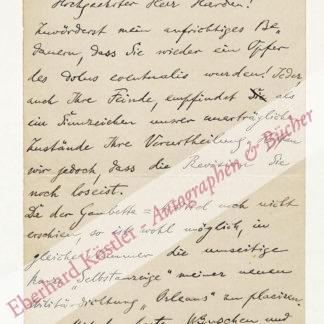 Hochgeehrter Herr Harden!
Zuvörderst mein aufrichtiges Be-
dauern, dass Sie wieder ein Opfer
des dolus eventualis wurden! Jeder,
auch Ihre Feinde, empfindet als
ein unsrer unerträglichen
Zustände Ihre Verurtheilung. Hoffen
wir jedoch, dass die Revision Sie
noch loseist.
Da der Gambetta = noch nicht
erschien, so ist's wohl möglich, in
gleicher Nummer die umseitige
kurze "Selbstanzeige" meiner neuen
Militär-Dichtung "Orleans" zu placiren.
Wünschen und
Eberhard Köstler - Autographen & Bücher